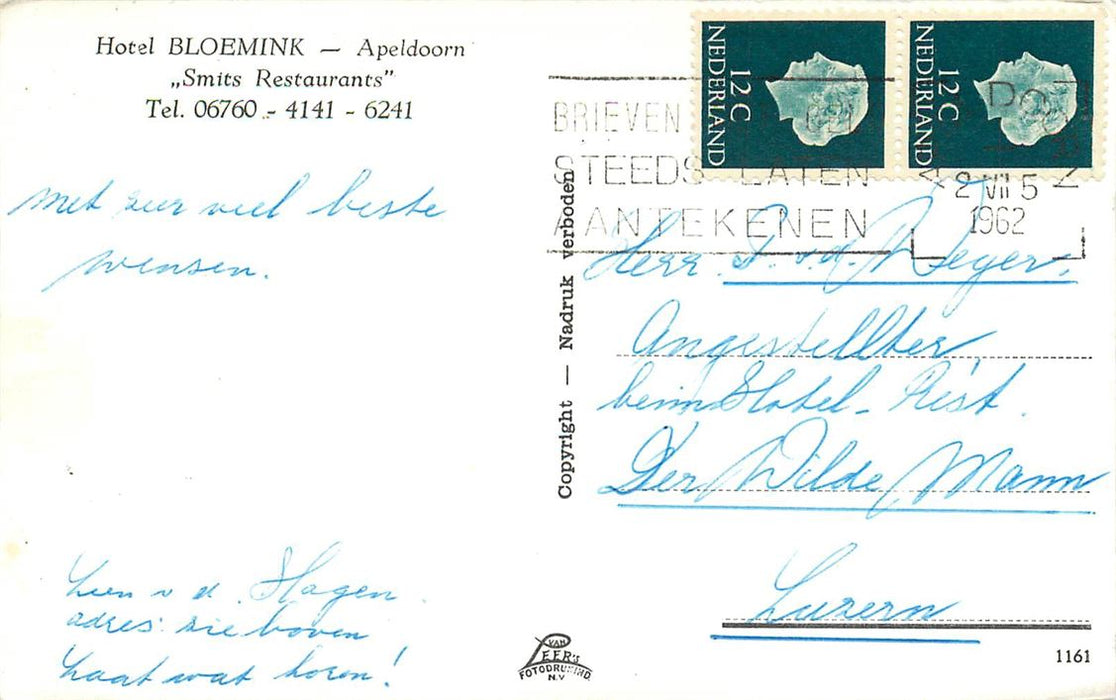 Hotel BLOEMINK — Apeldoorn
„Smits Restaurants”
Tel. 06760 - 4141 - 6241
met zeer veel beste
wensen.
Lien v d. Hagen.
adres: zie boven
Laat wat horen!
Copyright — Nadruk verboden
NEDERLAND
12 C
NEDERLAND
12 C
BRIEVEN
STEEDS LATEN
AANTEKENEN
2 VII 5
1962
Herr. P. v.d. Meyer.
Angestellter
beim Hotel - Rest.
Der Wilde Mann
Luzern
VAN
LEER's
FOTODRUKIND.
N.V
1161